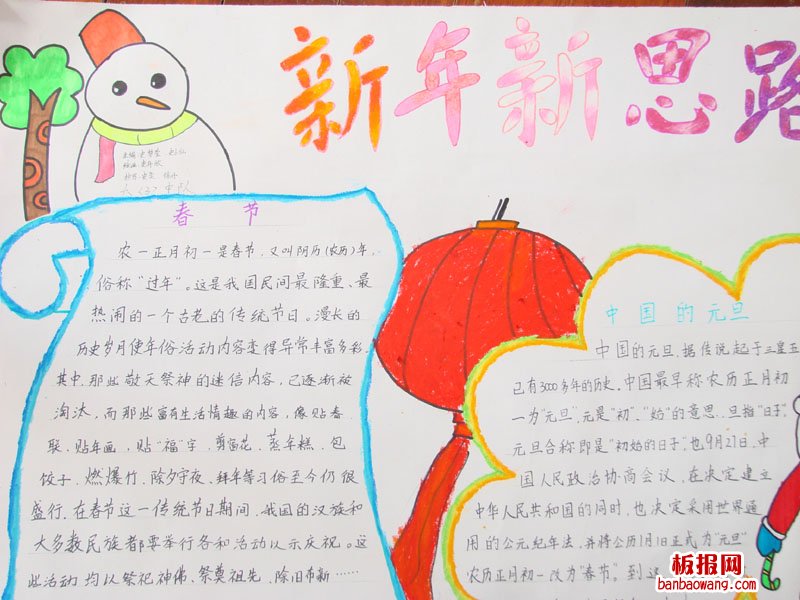 新年新思路
六(3)中队
春 节
农一正月初一是春节,又叫阴历(农历)年,
俗称“过年”。这是我国民间最隆重、最
热闹的一个古老的传统节日。漫长的
历史岁月使年俗活动内容变得异常丰富多彩,
其中,那些敬天祭神的迷信内容,已逐渐被
淘汰,而那些富有生活情趣的内容,像贴春
联、贴年画、贴“福”字,剪窗花、蒸年糕、包
饺子、燃爆竹、除夕守夜、拜年等习俗至今仍很
盛行,在春节这一传统节日期间,我国的汉族和
大多数民族都要举行各和活动以示庆祝。这
些活动均以祭祀神佛、祭奠祖先、除旧布新……
中国的元旦
中国的元旦,据传说起于三皇五
已有3000多年的历史。中国最早称农历正月初
一为“元旦”,元是“初”、“始”的意思,旦指“日子”,
元旦合称即是“初始的日子”。也9月27日,中
国人民政治协商会议,在决定建立
中华人民共和国的同时,也决定采用世界通
用的公元纪年法,并将公历1月1日正式为“元旦”
农历正月初一改为“春节”。到这
板报网
banbaowang.com